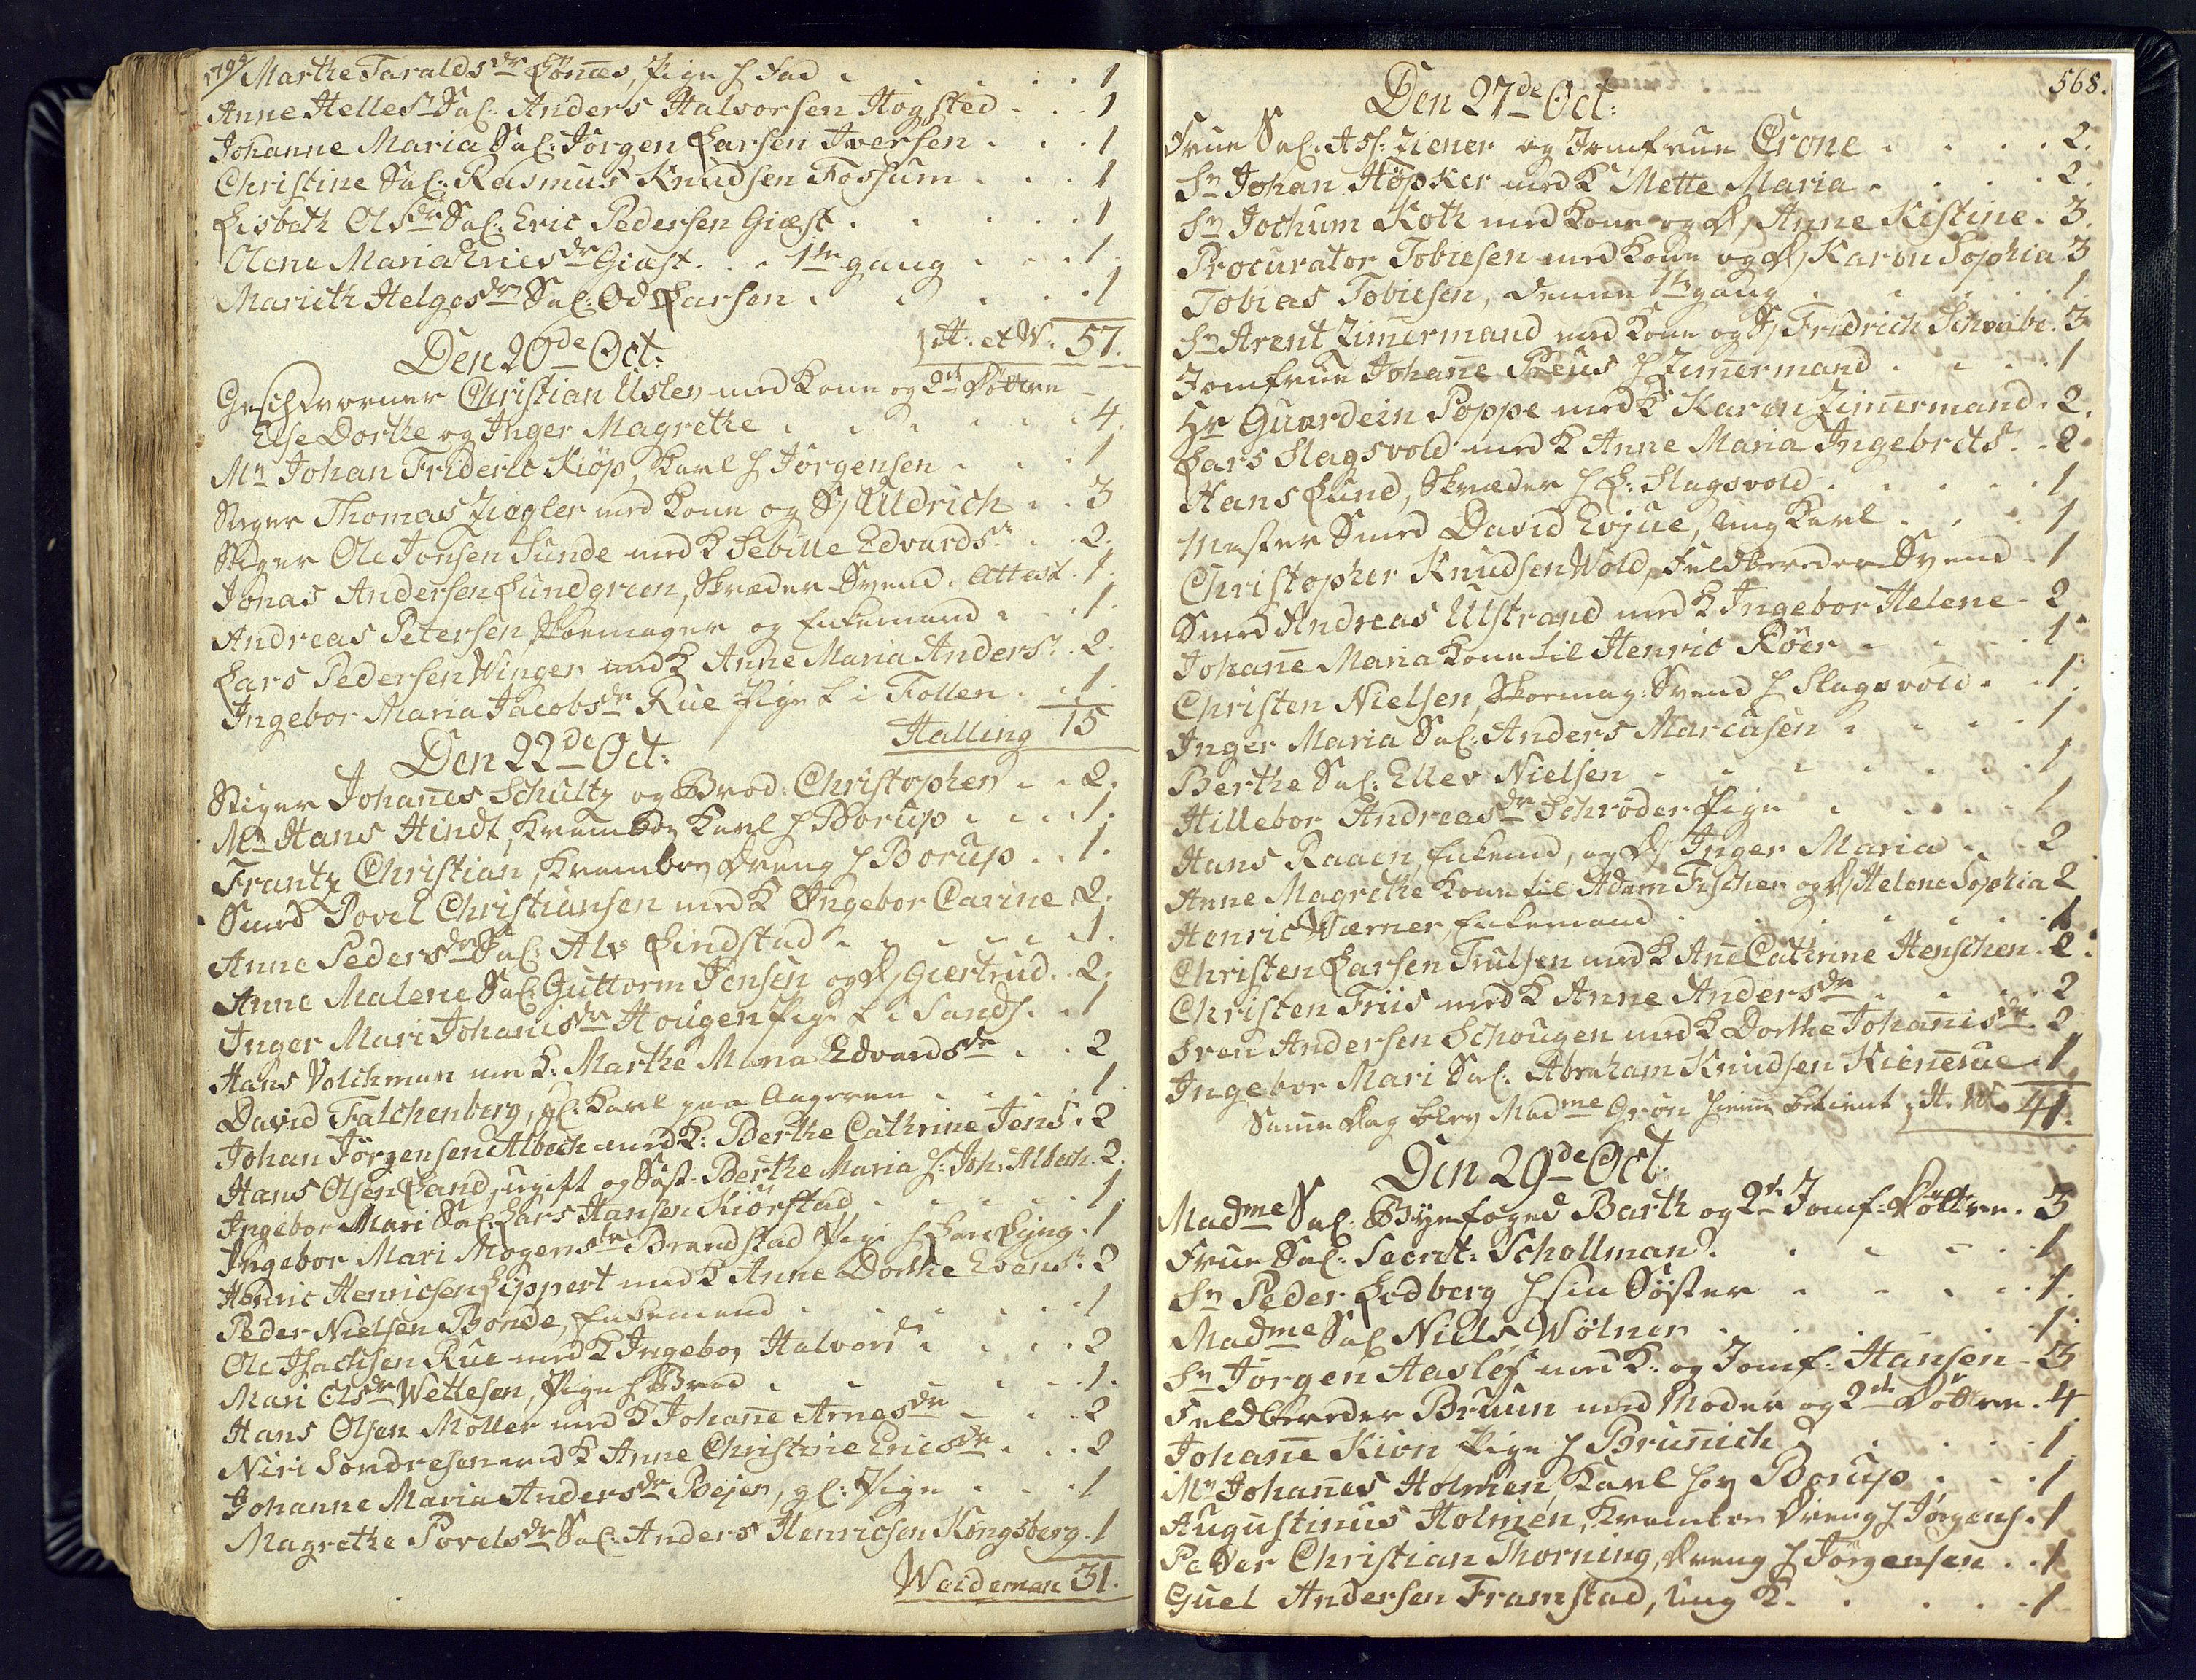 Marthe Taralds dr Lönnes, Pige h Fad 1
Anne Helles dr Sal: Anders Halvorsen Hogsted 1
Johanne Maria Sal: Jörgen Larsen Iversen 1
Christine Sal: Rasmus Knudsen Fossum 1
Lisbeth Ols dr Sal: Eric Pedersen Giæst 1
Olene Maria Erics dr Giæst 1te gang 1
Marith Helges dr Sal: Od Larsen 1
H: et W: 57.
Den 20de Oct:
Geschworner Christian Usler med Kone og 2de Döttre
Else Dorthe og Inger Magrethe 4.
Mr Johan Frideric Kiöp, Karl h Jörgensen 1
Stiger Thomas Ziegler med Kone og S/ Uldrich 3
Stiger Ole Jonsen Sunde med K Sebille Edvards: 2.
Jonas Andersen Lundgreen, Skræder Svend. Attest. 1.
Andreas Petersen, Skomager og Enkemand 1.
Lars Pedersen Winger med K Anne Maria Anders: 2.
Ingebor Maria Jacobs dr Rue Pige t i Follen 1.
Halling 15
Den 22de Oct:
Stiger Johanes Schultz og Brod: Christopher 2.
Mr Hans Hindt, Krambod Karl h Borup 1.
Frantz Christian, Krambod Dreng h Borup 1.
Smed Povel Christiansen med K Ingebor Carine 2.
Anne Peders dr Sal: Alv Lindstad 1.
Anne Malene Sal: Guttorm Jensen og D/ Giertrud. 2.
Inger Mari Johanes dr Hougen Pige t i Sands. 1
Hans Volchman med K: Marthe Maria Edvards dr 2
David Falchenberg, gl: Karl paa Aageren 1
Johan Jörgensen Albech med K: Berthe Cathrine Jens: 2
Hans Olsen Land, ugift og Söst: Berthe Maria h: Joh: Albech. 2.
Ingebor Mari Sal: Lars Hansen Kiörstad 1
Ingebor Mari Mogens dr Brandstad Pige h Lars Lyng. 1
Henric Henricsen Lippert med K Anne Dorthe Evens: 2
Peder Nielsen Bonde, Enkemand 1
Ole Isachsen Rue med K Ingebor Halvors 2
Mari Ols dr Wettesen, Pige h Brod 1.
Hans Olsen Möller med K Johane Arnes dr 2
Niri Sondresen med K Anne Christine Erics dr 2
Johanne Maria Anders dr Bejer, gl: Pige 1
Magrethe Povels dr Sal: Anders Henricsen Kongsberg. 1
Weideman 31.
568.
Den 27de Oct:
Frue Sal: Ass: Ziener og Jomfrue Crone 2.
Sr Johan Höpker med K Mette Maria 2.
Sr Jochum Koth med Kone og D/ Anne Kistine. 3.
Procurator Tobiesen med Kone og D/ Karen Sophia 3
Tobias Tobiesen, denne 1te gang 1
Sr Arent Zimermand med Kone og S/ Fridrich Schvabe. 3
Jomfrue Johane Preus h Zimermand 1
Hr Guardein Poppe med K Karen Zimermand. 2.
Lars Slagsvold med K Anne Maria Ingebrets: 2
Hans Lund, Skræder h L: Slagsvold 1
Mester Smed David Evjue, ung Karl 1
Christopher Knudsen Wold, Feldbereder Svend 1
Smed Andreas Ulstrand med K Ingebor Helene 2
Johane Maria Kone til Henric Röer 1
Christen Nielsen, Skomag: Svend h Slagsvold 1.
Inger Maria Sal: Anders Marcusen 1
Berthe Sal: Ellev Nielsen 1
Hillebor Andreas dr Schröder Pige 1
Hans Raaen, Enkemd, og D/ Inger Maria 2
Anne Magrethe Kone til Adam Fischer og D/ Helene Sophia 2
Henric Værner, Enkemand 1
Christen Larsen Trulsen med K Ane Cathrine Henschen. 2.
Christen Friis med K Anne Anders dr 2
Sven Andersen Schougen med K Dorthe Johanis dr 2
Ingebor Mari Sal: Abraham Knudsen Kienerue 1
Samme Dag blev Mad me Grön hieme betient, H. W. 41.
Den 29de Oct.
Mad me Sal: Byefoged Barth og 2de Jomf: Döttre. 3
Frue Sal: Secret: Schollman 1
Sr Peder Ledberg h sin Söster 1.
Mad me Sal Niels Wölner 1.
Sr Jörgen Aaslöf med K: og Jomf: Hansen 3
Feldbereder Bruun med Moder og 2de Döttre. 4
Johane Kion Pige h Brunich 1
Mr Johanes Holmen, Karl hos Borup 1
Augustinus Holmen, Krambod Dreng h Jörgens. 1
Peder Christian Thorning, Dreng h Jörgensen 1
Guel Andersen Framstad, ung K. 1